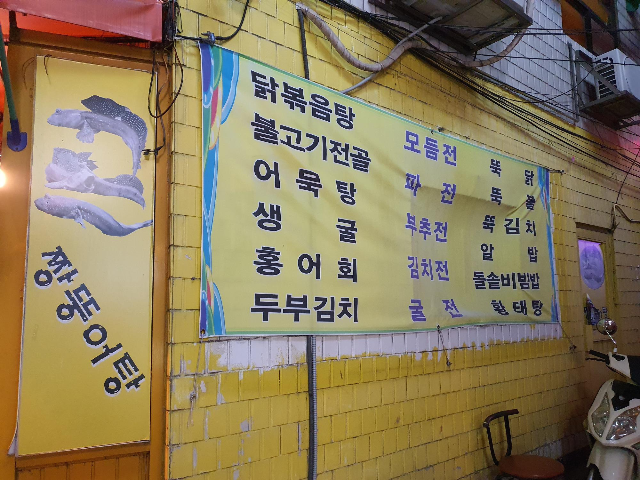 짱뚱어탕
닭볶음탕
불고기전골
어묵탕
생굴
홍어회
두부김치
모듬전
파전
부추전
김치전
굴전
뚝닭
뚝불
뚝김치
알밥
돌솥비빔밥
황태탕